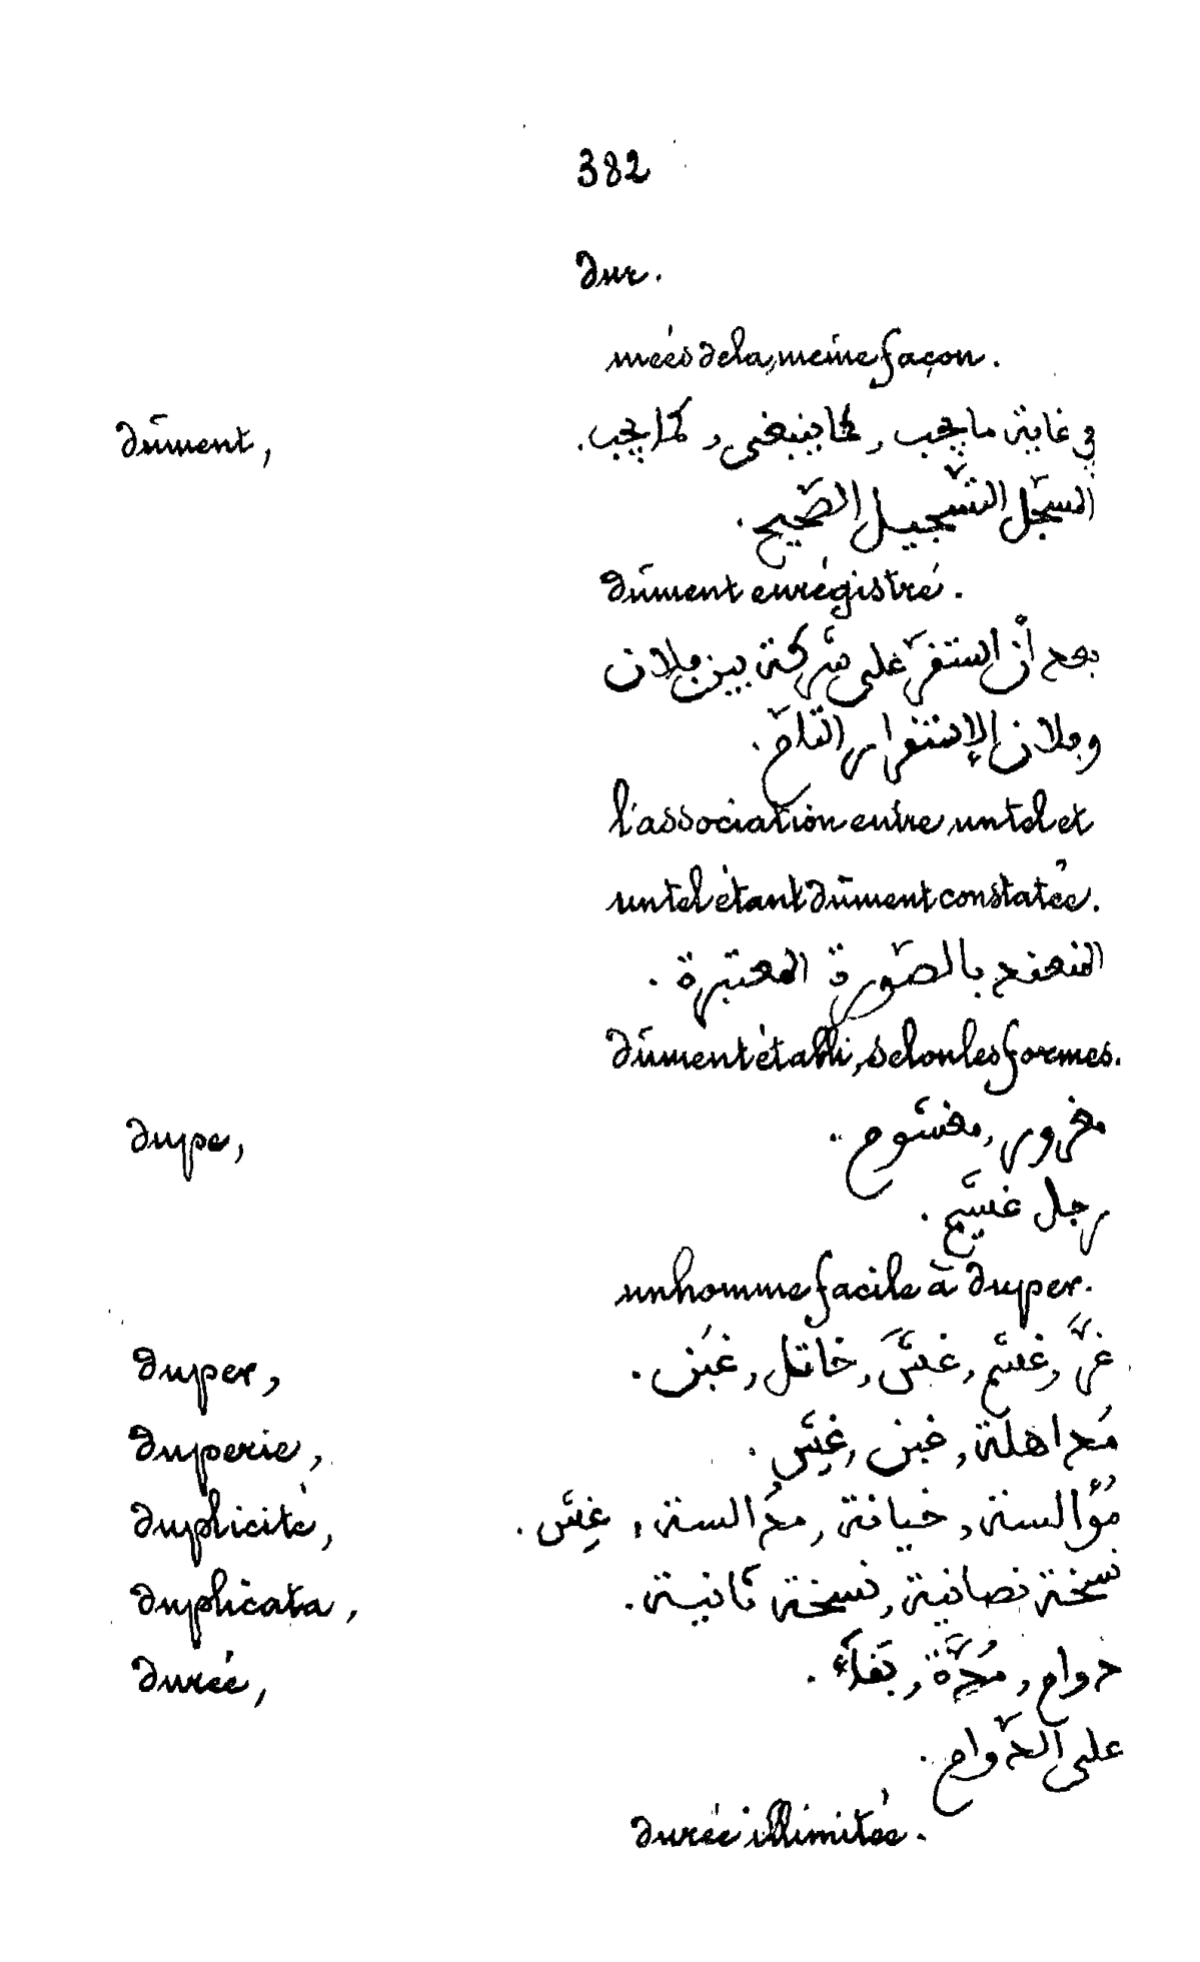 382
dur.
mées de la même façon.
dûment, في غاية ما يجب, كما ينبغي, كما يجب.
المسجّل التسّجيل الصّحيح.
dûment enrégistré.
بعد أن استقرّ على شركة بين فلان
وفلان الإستقرار التّامّ.
l'association entre un tel et
un tel étant dûment constatée.
المنعقد بالصّورة المعتبرة.
dûment établi, selon les formes.
dupe, مغرور, مغشوم.
رجل غشيم.
un homme facile à duper.
duper, غرَّ, غشم, غشَّ, خاتل, غبَن.
duperie, مُداهلة, غبن, غِشّ.
duplicité, مُؤَالسة, خيانة, مدُالسة, غِشّ.
duplicata, نسخة نصانية, نسخة ثانية.
durée, دوام, مُدَّة, بَقاء.
على الدّوام.
durée illimitée.